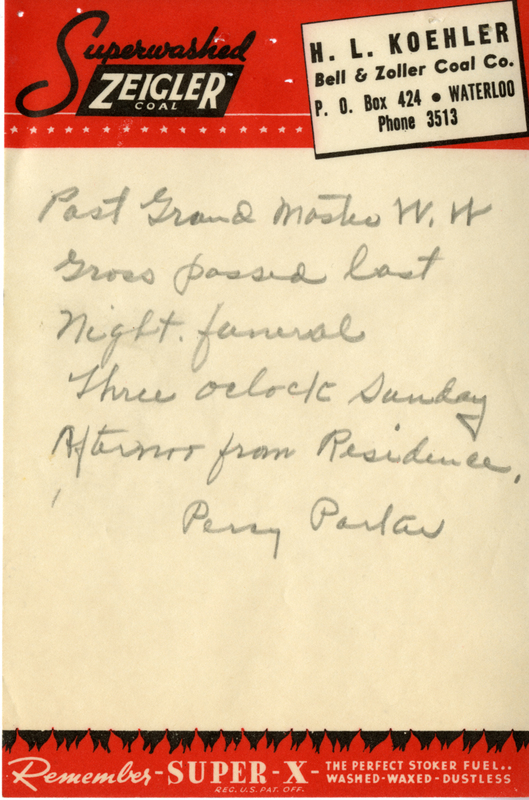 Superwashed
ZEIGLER
COAL
H. L. KOEHLER
Bell & Zoller Coal Co.
P. O. Box 424 • WATERLOO
Phone 3513
Past Grand Master W. W
Gross passed last
Night. funeral
Three oclock Sunday
Afternoo from Residence.
Percy Parker
Remember-SUPER-X-THE PERFECT STOKER FUEL..
WASHED-WAXED-DUSTLESS
REG. U.S. PAT. OFF.